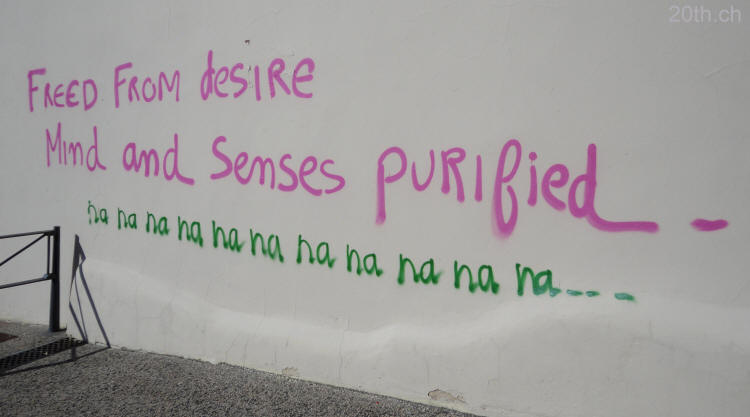 20th.ch
FREED FROM desIRE
Mind and Senses PURIfied_ _
na na na na na na na na na na na_ _ _